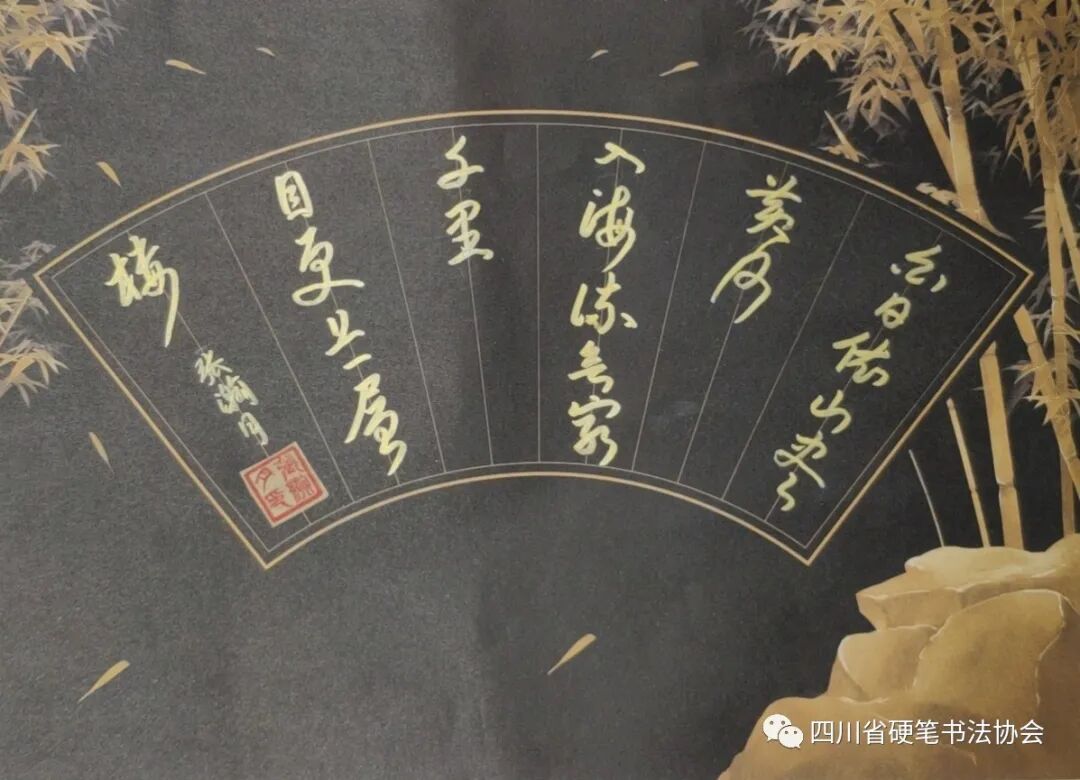 白日依山尽
黄河
入海流欲穷
千里
目更上一层
楼
张瀚月
张瀚月印
四川省硬笔书法协会